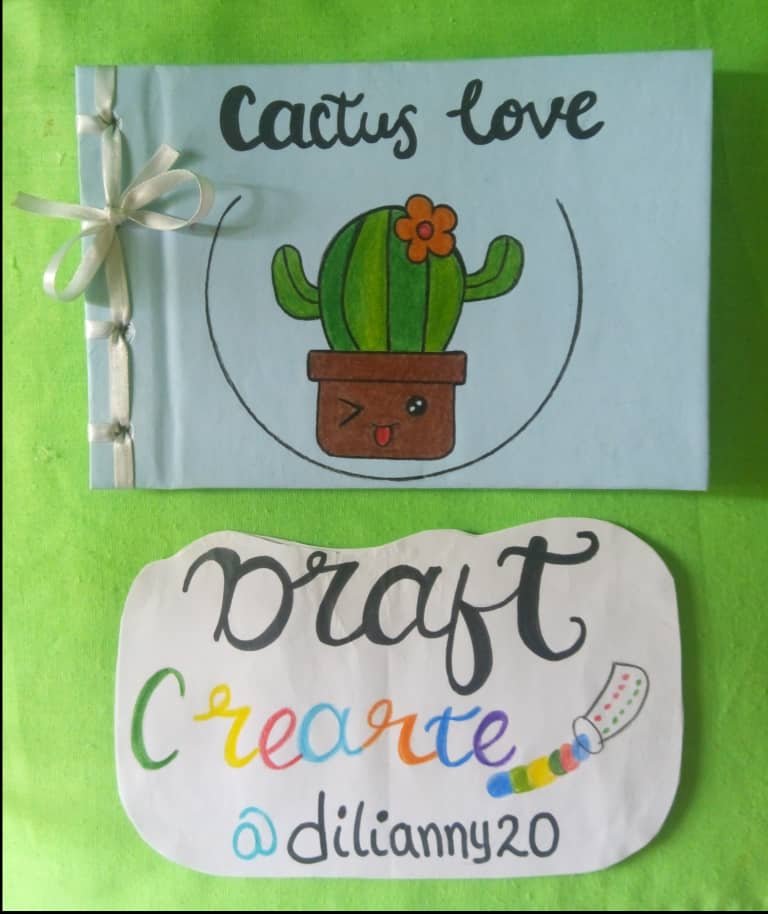 Cactus love
Draft
Crearte
@dilianny20